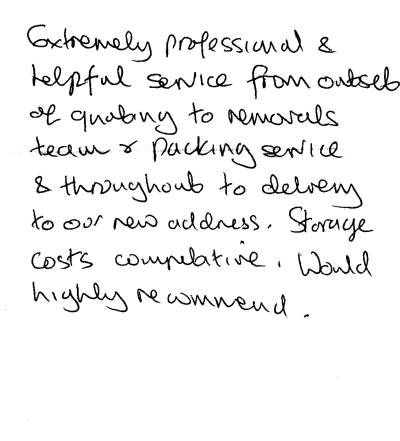 Extremely professional &
helpful service from outset
of quoting to removals
team & packing service
& throughout to delivery
to our new address. Storage
costs competative. Would
highly recommend.